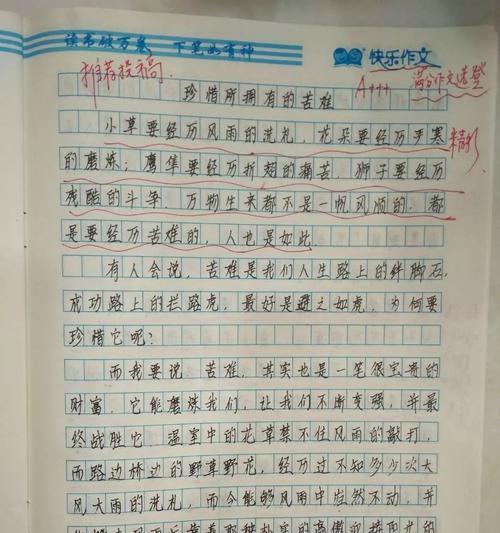 读书破万卷 下笔如有神
快乐作文
推荐投稿 A+++ 满分作文选登
珍惜所拥有的苦难
小草要经历风雨的洗礼，花朵要经历严寒
精彩
的磨炼；鹰隼要经历折翅的痛苦，狮子要经历
残酷的斗争，万物生来都不是一帆风顺的，都
是要经历苦难的，人也是如此。
有人会说，苦难是我们人生路上的绊脚石，
成功路上的拦路虎，最好是避之如虎，为何要
珍惜它呢？
而我要说，苦难，其实也是一笔很宝贵的
财富，它能磨炼我们，让我们不断变强，并最
终战胜它。温室中的花草禁不住风雨的敲打，
而路边桥边的野草野花，经历过不知多少次大
风大雨的洗礼，而今能够风雨中岿然不动，并